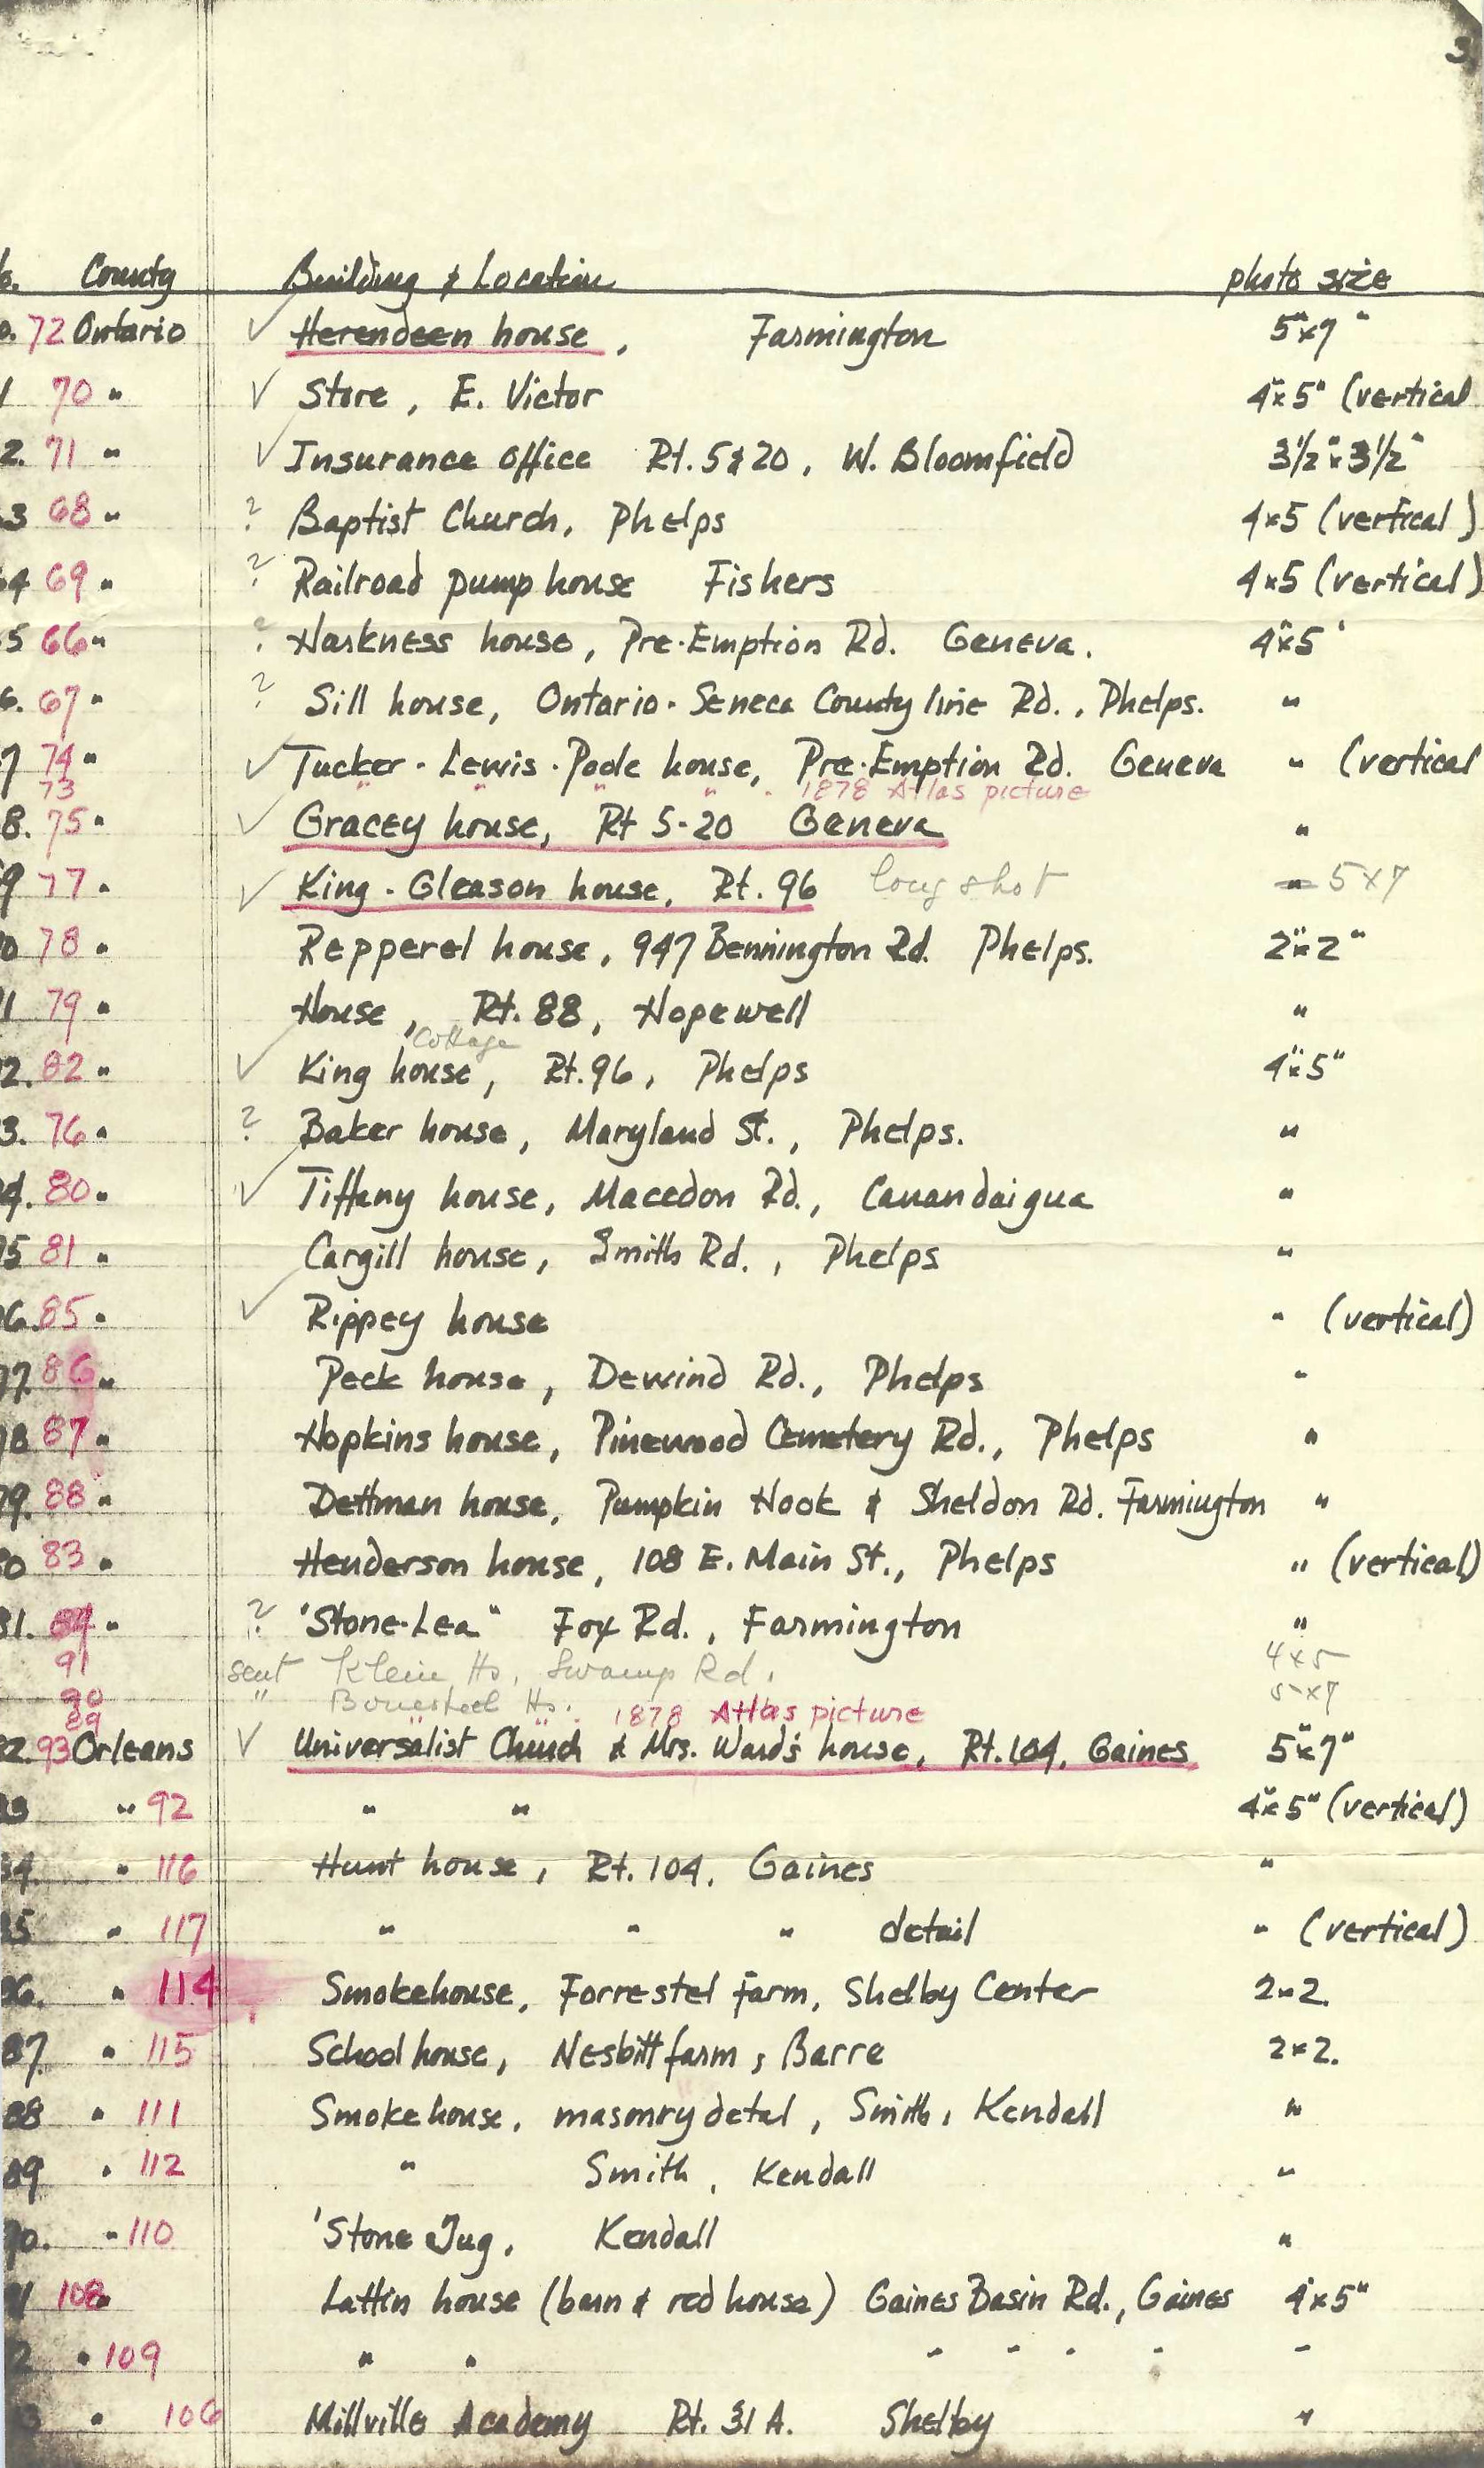 3
o. County Building & Location photo size
0. 72 Ontario ✓ Herendeen house, Farmington 5"x7"
1 70 " ✓ Store, E. Victor 4"x5" (vertical
2. 71 " ✓ Insurance office Rt. 5&20, W. Bloomfield 3 1/2"x3 1/2"
3 68 " ? Baptist Church, Phelps 4x5 (vertical)
4 69 " ? Railroad pump house Fishers 4x5 (vertical)
5 66 " ? Harkness house, Pre-Emption Rd. Geneva. 4"x5"
6. 67 " ? Sill house, Ontario-Seneca County line Rd., Phelps. "
7 74 " ✓ Tucker-Lewis-Poole house, Pre-Emption Rd. Geneva " (vertical
73 " " " " 1878 Atlas picture
8. 75 " ✓ Gracey house, Rt 5-20 Geneva "
9 77 " ✓ King-Gleason house, Rt. 96 long shot " 5x7
0 78 " Repperel house, 947 Bennington Rd. Phelps. 2"x2"
1 79 " House, Rt. 88, Hopewell "
Cottage
2. 82 " ✓ King house, Rt. 96, Phelps 4"x5"
3. 76 " ? Baker house, Maryland St., Phelps. "
4. 80 " ✓ Tiffany house, Macedon Rd., Canandaigua "
5 81 " Cargill house, Smith Rd., Phelps "
6. 85 " ✓ Rippey house " (vertical)
7. 86 " Peck house, Dewind Rd., Phelps "
8 87 " Hopkins house, Pinewood Cemetery Rd., Phelps "
9. 88 " Dettman house, Pumpkin Hook & Sheldon Rd. Farmington "
0 83 " Henderson house, 108 E. Main St., Phelps " (vertical)
81. 84 " ? "Stone-Lea" Fox Rd., Farmington "
91 sent Klein Ho, Swamp Rd. 4x5
90 " Bonesteel Ho. 5x7
89 " " 1878 Atlas picture
82. 93 Orleans ✓ Universalist Church & Mrs. Ward's house, Rt. 104, Gaines 5"x7"
83 " 92 " " 4"x5" (vertical)
84. " 116 Hunt house, Rt. 104, Gaines "
85 " 117 " " " detail " (vertical)
86. " 114 Smokehouse, Forrestel farm, Shelby Center 2x2.
87. " 115 School house, Nesbitt farm, Barre 2x2.
88 " 111 Smoke house, masonry detal, Smith, Kendall "
89 " 112 " Smith, Kendall "
90. " 110 'Stone Jug, Kendall "
91 108 " Lattin house (barn & red house) Gaines Basin Rd., Gaines 4x5"
2 " 109 " " " " " " "
3 " 106 Millville Academy Rt. 31A. Shelby "